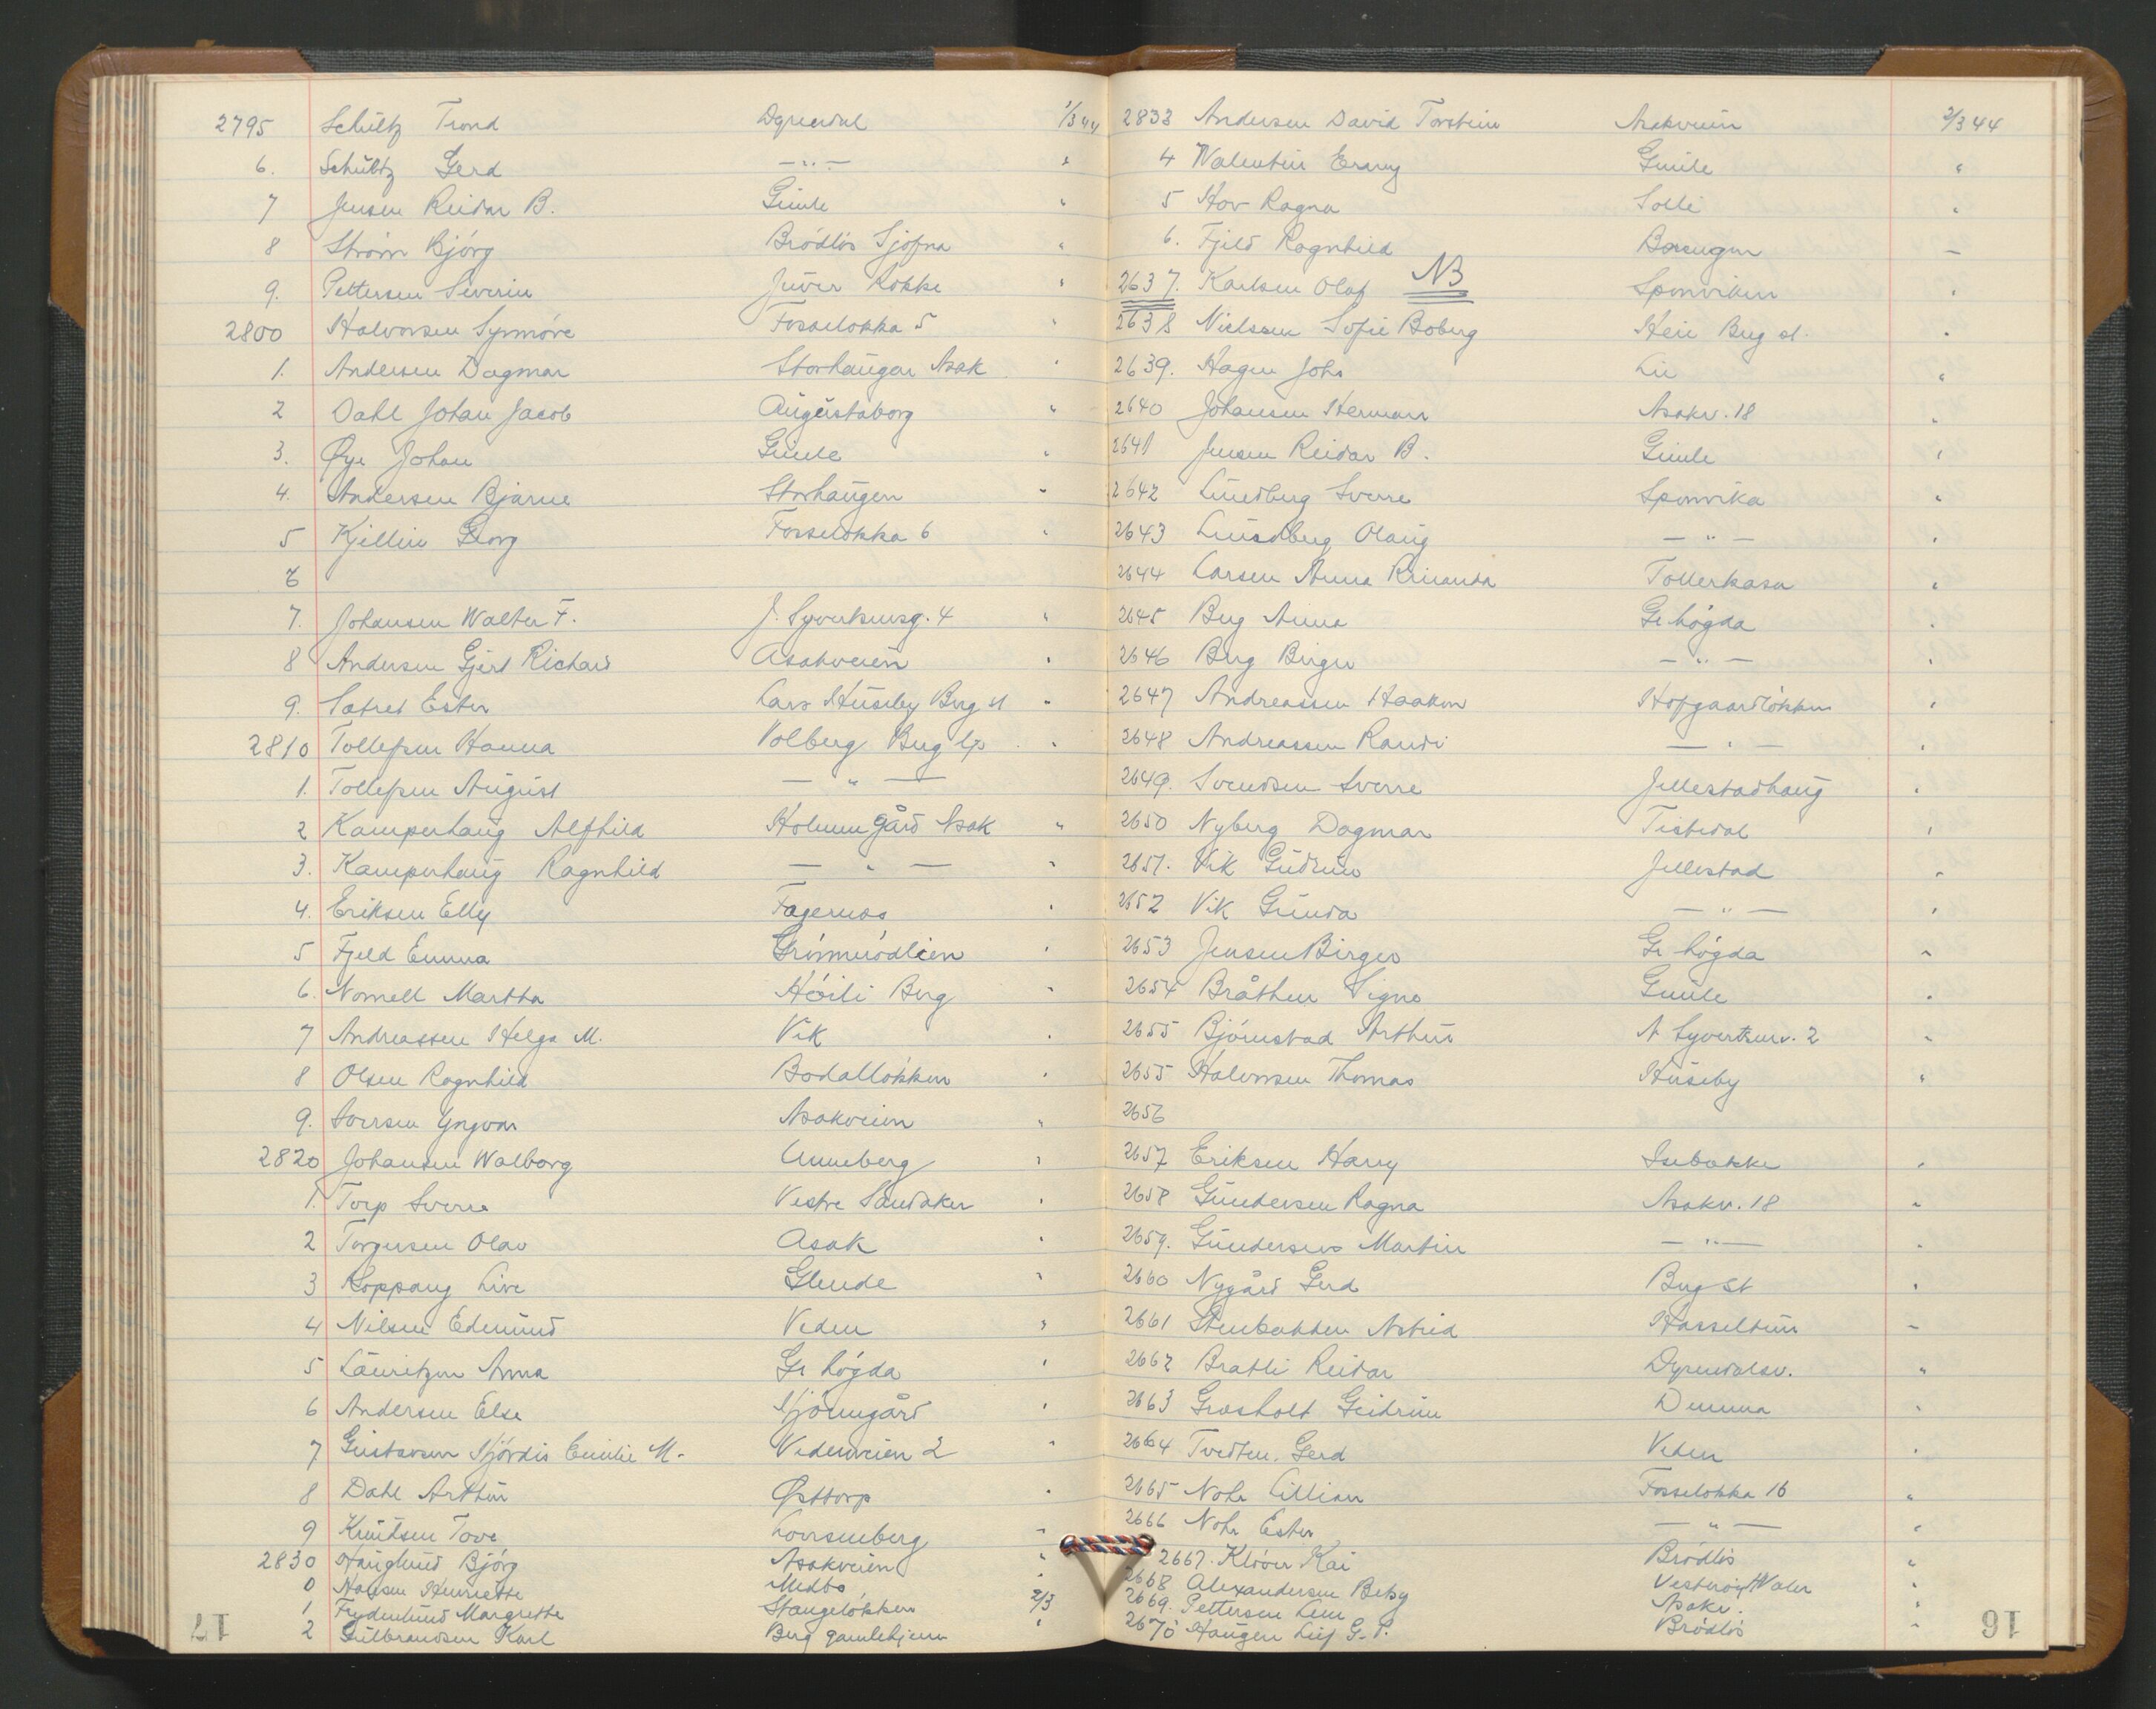 2795 Schültz Trond Dyrendal 1/3 44
6. Schültz Gerd —"— "
7 Jensen Reidar B. Gimle "
8 Strøm Bjørg Brödlös Sjøfna "
9. Pettersen Severin Juver Rokke "
2800 Halvorsen Synnøve Fosseløkka 5 "
1. Andersen Dagmar Storhaugen Asak "
2 Dahl Johan Jacob Augustaborg "
3. Øye Johan Gimle "
4. Andersen Bjarne Storhaugen "
5 Kjellin Georg Fosseløkka 6 "
6
7. Johansen Walter F. J. Syvertsensg. 4 "
8 Andersen Gjert Richard Asakveien "
9. Sætret Ester Lars Huseby Berg st "
2810 Tollefsen Hanna Volberg Berg lp "
1. Tollefsen August —"—
2 Kamperhaug Alfhild Holmm gård Asak "
3. Kamperhaug Ragnhild —"— "
4. Eriksen Elly Fagernes "
5 Fjeld Emma Grimmerödlien "
6. Nomell Martha Höili Berg "
7 Andreassen Helga M. Vik "
8 Olsen Ragnhild Bodalløkken "
9. Iversen Yngvar Asakveien "
2820 Johansen Walborg Anneberg "
1. Torp Sverre Vestre Sandaker "
2 Torgersen Olav Asak "
3 Koppang Live Glende "
4 Nilsen Edmund Veden "
5 Lauritzen Anna Gr. høgda "
6 Andersen Else Hjörnegård "
7 Gustavsen Hjördis Emilie M. Vedenveien 2 "
8 Dahl Arthur Østtorp "
9 Knutsen Tove Lorrsenberg "
2830 Hauglund Bjørg Asakveien "
0 Hansen Henriette Medbo "
1 Frydenlund Margrethe Stangeløkken 2/3
2 Gulbrandsen Karl Berg gamlehjem "
17
2833 Andersen David Torstein Asakveien 2/3 44
4 Walentin Erany Gimle "
5 Hov Ragna Solli "
6. Fjeld Ragnhild —
2637. Karlsen Olaf NB Sponviken "
2638 Nielsen Sofie Boberg Heie Berg st. "
2639. Hagen Johs Lie "
2640 Johansen Herman Asakv. 18 "
2641 Jensen Reidar B. Gimle "
2642 Lundberg Sverre Sponvika "
2643 Lundberg Olaug —"— "
2644 Larsen Anna Rinanda Tollerkasa "
2645 Berg Anna Gr høgda "
2646 Berg Birger —"— "
2647 Andreassen Haakon Hofgaardløkken "
2648 Andreassen Randi —"— "
2649. Svendsen Sverre Jellestadhaug "
2650 Nyberg Dagmar Tistedal "
2651. Vik Gudrun Jellestad "
2652 Vik Gunda —"— "
2653 Jensen Birger Gr høgda "
2654 Bråthen Signe Gimle "
2655 Bjørnstad Arthur A Syvertsenv. 2 "
2655 Halvorsen Thomas Huseby "
2656
2657 Eriksen Harry Isebakke "
2658 Gundersen Ragna Asakv. 18 "
2659. Gundersen Martin —"— "
2660 Nygård Gerd Berg st "
2661 Stenbakken Astrid Hasseltun "
2662 Bratli Reidar Dyrendalsv. "
2663 Grosholt Gudrun Demma "
2664 Tvedten. Gerd Veden "
2665 Nohr Lillian Fosseløkka 16 "
2666 Nohr Ester —"— "
2667. Kløver Kai Brödlös "
2668 Alexandersen Betsy Vesterøy Hvaler "
2669. Pettersen Asakv. "
2670 Haugen Leif G. P. Brödlös "
16